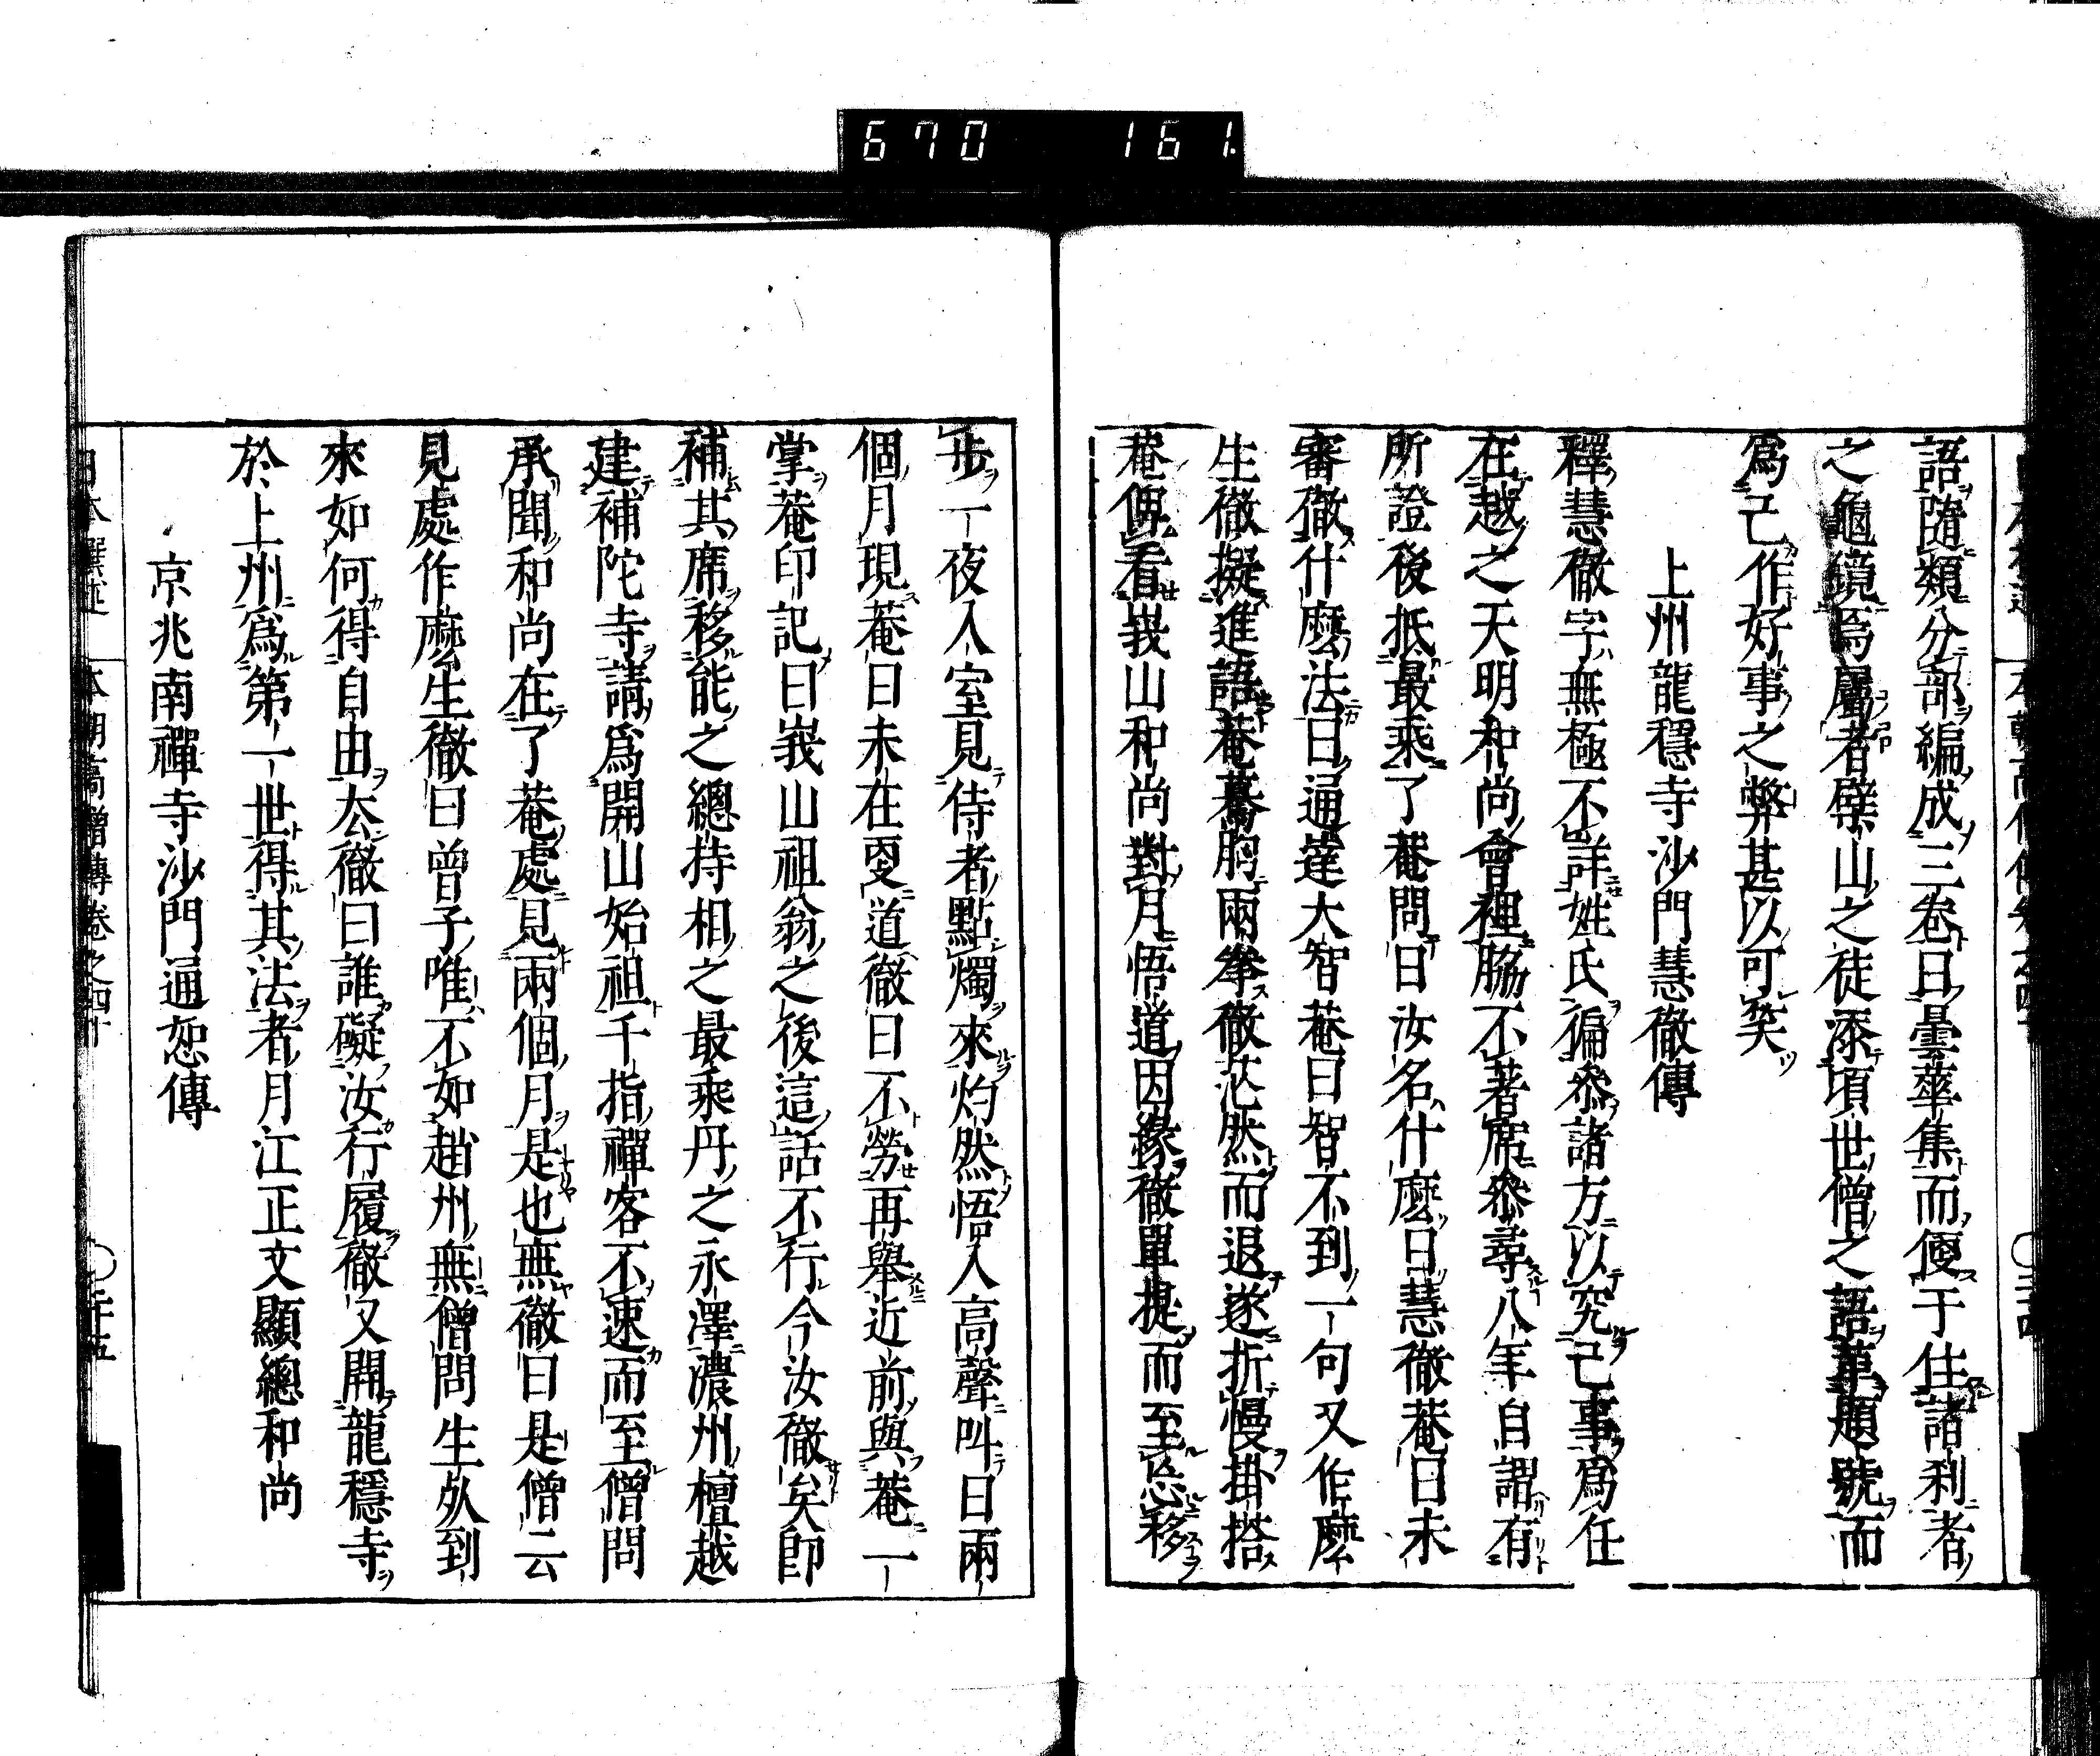 670 161
語隨類分部編成三卷曰曇華集而便于住諸刹者
之龜鏡焉屬者檗山之徒添頃世僧之語華題號而
爲己作好事之弊甚以可笑
上州龍穩寺沙門慧徹傳
釋慧徹字無極不詳姓氏徧參諸方以究己事爲任
在越之天明和尚會裡脇不著席參尋八年自謂有
所證後抵最乘了菴問曰汝名什麼曰慧徹菴曰未
審徹什麼法曰通達大智菴曰智不到一句又作麼
生徹擬進語菴驀胸兩拳徹茫然而退遂折慢掛搭
菴俾看峩山和尚對月悟道因緣徹單提而至忘移
步一夜入室見侍者點燭來灼然悟入高聲叫曰兩
個月現菴曰未在更道徹曰不勞再舉近前與菴一
掌菴印記曰峩山祖翁之後這話不行今汝徹矣即
補其席移能之總持相之最乘丹之永澤濃州檀越
建補陀寺請爲開山始祖千指禪客不速而至僧問
承聞和尚在了菴處見兩個月是也無徹曰是僧云
見處作麼生徹曰曾子唯不如趙州無僧問生死到
來如何得自由去徹曰誰礙汝行履徹又開龍穩寺
於上州爲第一世得其法者月江正文顯總和尚
京兆南禪寺沙門通恕傳
日本撰述 本朝高僧傳卷之四十 〇二十五